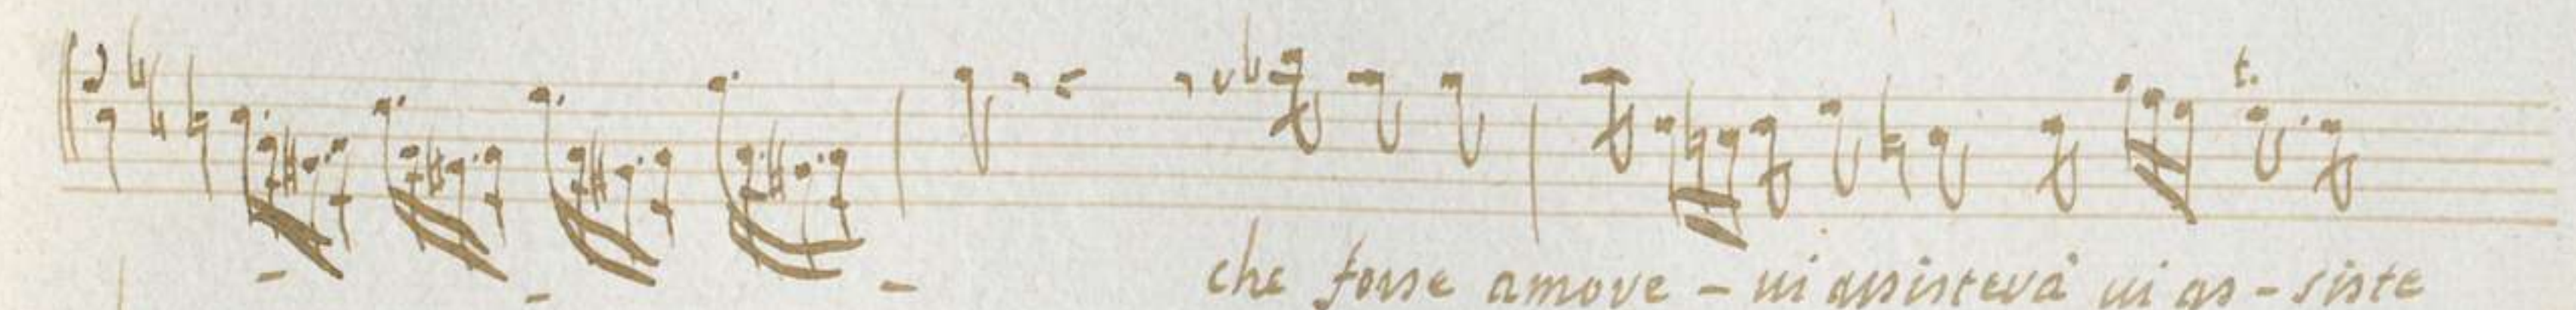 t.
che forse amore - vi assisterà vi as - siste